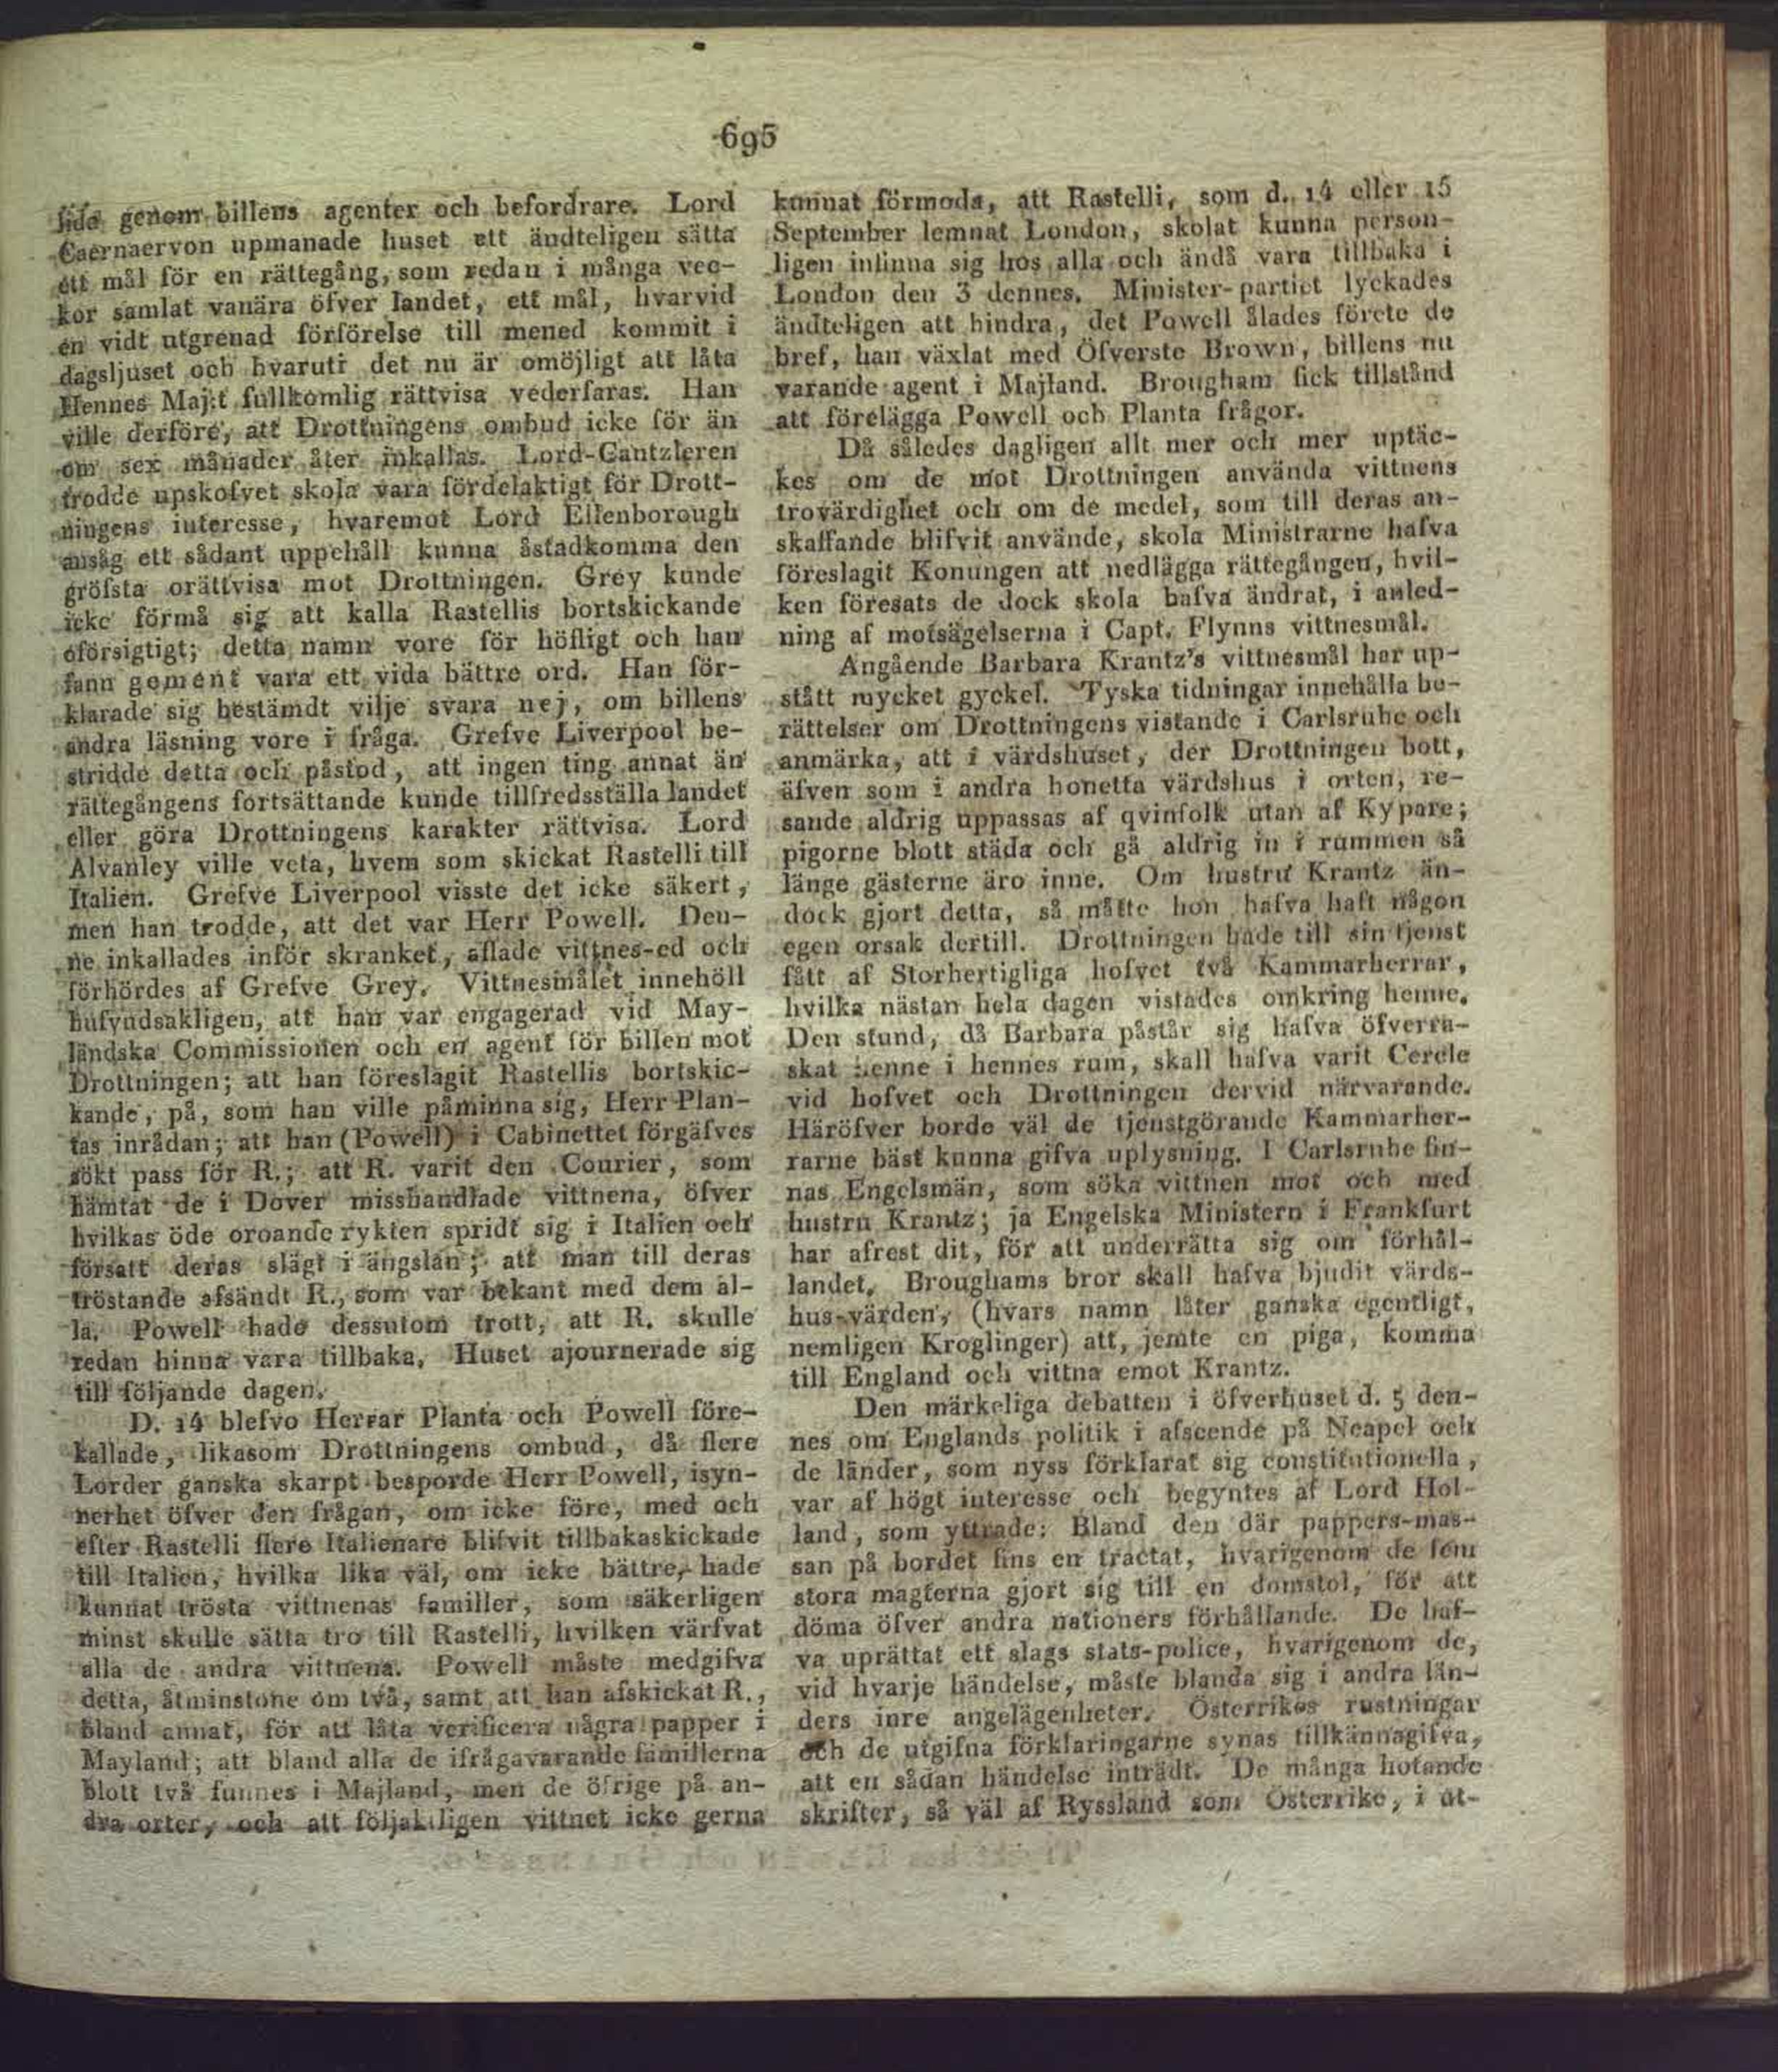 695
sida genom billens agenter och befordrare. Lord
Caernaervon upmanade huset att ändteligen sätta
ett mål för en rättegång, som redan i många vec-
kor samlat vanära öfver landet, ett mål, hvarvid
en vidt utgrenad förförelse till mened kommit i
dagsljuset och hvaruti det nu är omöjligt att låta
Hennes Maj:t fullkomlig rättvisa vederfaras. Han
ville derföre, att Drottningens ombud icke för än
om sex månader åter inkallas. Lord-Cantzleren
trodde upskofvet skola vara fördelaktigt för Drott-
ningens interesse, hvaremot Lord Ellenborough
ansåg ett sådant uppehåll kunna åstadkomma den
gröfsta orättvisa mot Drottningen. Grey kunde
icke förmå sig att kalla Rastellis bortskickande
oförsigtigt; detta namn vore för höfligt och han
fann gement vara ett vida bättre ord. Han för-
klarade sig bestämdt vilje svara nej, om billens
andra läsning vore i fråga. Grefve Liverpool be-
stridde detta och påstod, att ingen ting annat än
rättegångens fortsättande kunde tillfredsställa landet
eller göra Drottningens karakter rättvisa. Lord
Alvanley ville veta, hvem som skickat Rastelli till
Italien. Grefve Liverpool visste det icke säkert,
men han trodde, att det var Herr Powell. Den-
ne inkallades inför skranket, aflade vittnes-ed och
förhördes af Grefve Grey. Vittnesmålet innehöll
hufvudsakligen, att han var engagerad vid May-
ländska Commissionen och en agent för billen mot
Drottningen; att han föreslagit Rastellis bortskic-
kande, på, som han ville påminna sig, Herr Plan-
tas inrådan; att han (Powell) i Cabinettet förgäfves
sökt pass för R.; att R. varit den Courier, som
hämtat de i Dover misshandlade vittnena, öfver
hvilkas öde oroande rykten spridt sig i Italien och
försatt deras slägt i ängslan; att man till deras
tröstande afsändt R., som var bekant med dem al-
la. Powell hade dessutom trott, att R. skulle
redan hinna vara tillbaka. Huset ajournerade sig
till följande dagen.
D. 14 blefvo Herrar Planta och Powell före-
kallade, likasom Drottningens ombud, då flere
Lorder ganska skarpt besporde Herr Powell, isyn-
nerhet öfver den frågan, om icke före, med och
efter Rastelli flere Italienare blifvit tillbakaskickade
till Italien, hvilka lika väl, om icke bättre, hade
kunnat trösta vittnenas familler, som säkerligen
minst skulle sätta tro till Rastelli, hvilken värfvat
alla de andra vittnena. Powell måste medgifva
detta, åtminstone om två, samt att han afskickat R.,
bland annat, för att låta verificera några papper i
Mayland; att bland alla de ifrågavarande famillerna
blott två funnes i Majland, men de öfrige på an-
dra orter, och att följaktligen vittnet icke gerna
kunnat förmoda, att Rastelli, som d. 14 eller 15
September lemnat London, skolat kunna person-
ligen infinna sig hos alla och ändå vara tillbaka i
London den 3 dennes. Minister-partiet lyckades
ändteligen att hindra, det Powell ålades förete de
bref, han växlat med Öfverste Brown, billens nu
varande agent i Majland. Brougham fick tillstånd
att förelägga Powell och Planta frågor.
Då således dagligen allt mer och mer uptäc-
kes om de mot Drottningen använda vittnens
trovärdighet och om de medel, som till deras an-
skaffande blifvit använde, skola Ministrarne hafva
föreslagit Konungen att nedlägga rättegången, hvil-
ken föresats de dock skola hafva ändrat, i anled-
ning af motsägelserna i Capt. Flynns vittnesmål.
Angående Barbara Krantz's vittnesmål har up-
stått mycket gyckel. Tyska tidningar innehålla be-
rättelser om Drottningens vistande i Carlsruhe och
anmärka, att i värdshuset, der Drottningen bott,
äfven som i andra honetta värdshus i orten, re-
sande aldrig uppassas af qvinfolk utan af Kypare;
pigorne blott städa och gå aldrig in i rummen så
länge gästerne äro inne. Om hustru Krantz än-
dock gjort detta, så måtte hon hafva haft någon
egen orsak dertill. Drottningen hade till sin tjenst
fått af Storhertigliga hofvet två Kammarherrar,
hvilka nästan hela dagen vistades omkring henne.
Den stund, då Barbara påstår sig hafva öfverra-
skat henne i hennes rum, skall hafva varit Cercle
vid hofvet och Drottningen dervid närvarande.
Häröfver borde väl de tjenstgörande Kammarher-
rarne bäst kunna gifva uplysning. I Carlsruhe fin-
nas Engelsmän, som söka vittnen mot och med
hustru Krantz; ja Engelska Ministern i Frankfurt
har afrest dit, för att underrätta sig om förhål-
landet. Broughams bror skall hafva bjudit värds-
hus-värden, (hvars namn låter ganska egentligt,
nemligen Kroglinger) att, jemte en piga, komma
till England och vittna emot Krantz.
Den märkeliga debatten i öfverhuset d. 5 den-
nes om Englands politik i afseende på Neapel och
de länder, som nyss förklarat sig constitutionella,
var af högt interesse och begyntes af Lord Hol-
land, som yttrade: Bland den där pappers-mas-
san på bordet fins en tractat, hvarigenom de fem
stora magterna gjort sig till en domstol, för att
döma öfver andra nationers förhållande. De haf-
va uprättat ett slags stats-police, hvarigenom de,
vid hvarje händelse, måste blanda sig i andra län-
ders inre angelägenheter. Österrikes rustningar
och de utgifna förklaringarne synas tillkännagifva,
att en sådan händelse inträdt. De många hotande
skrifter, så väl af Ryssland som Österrike, i at-